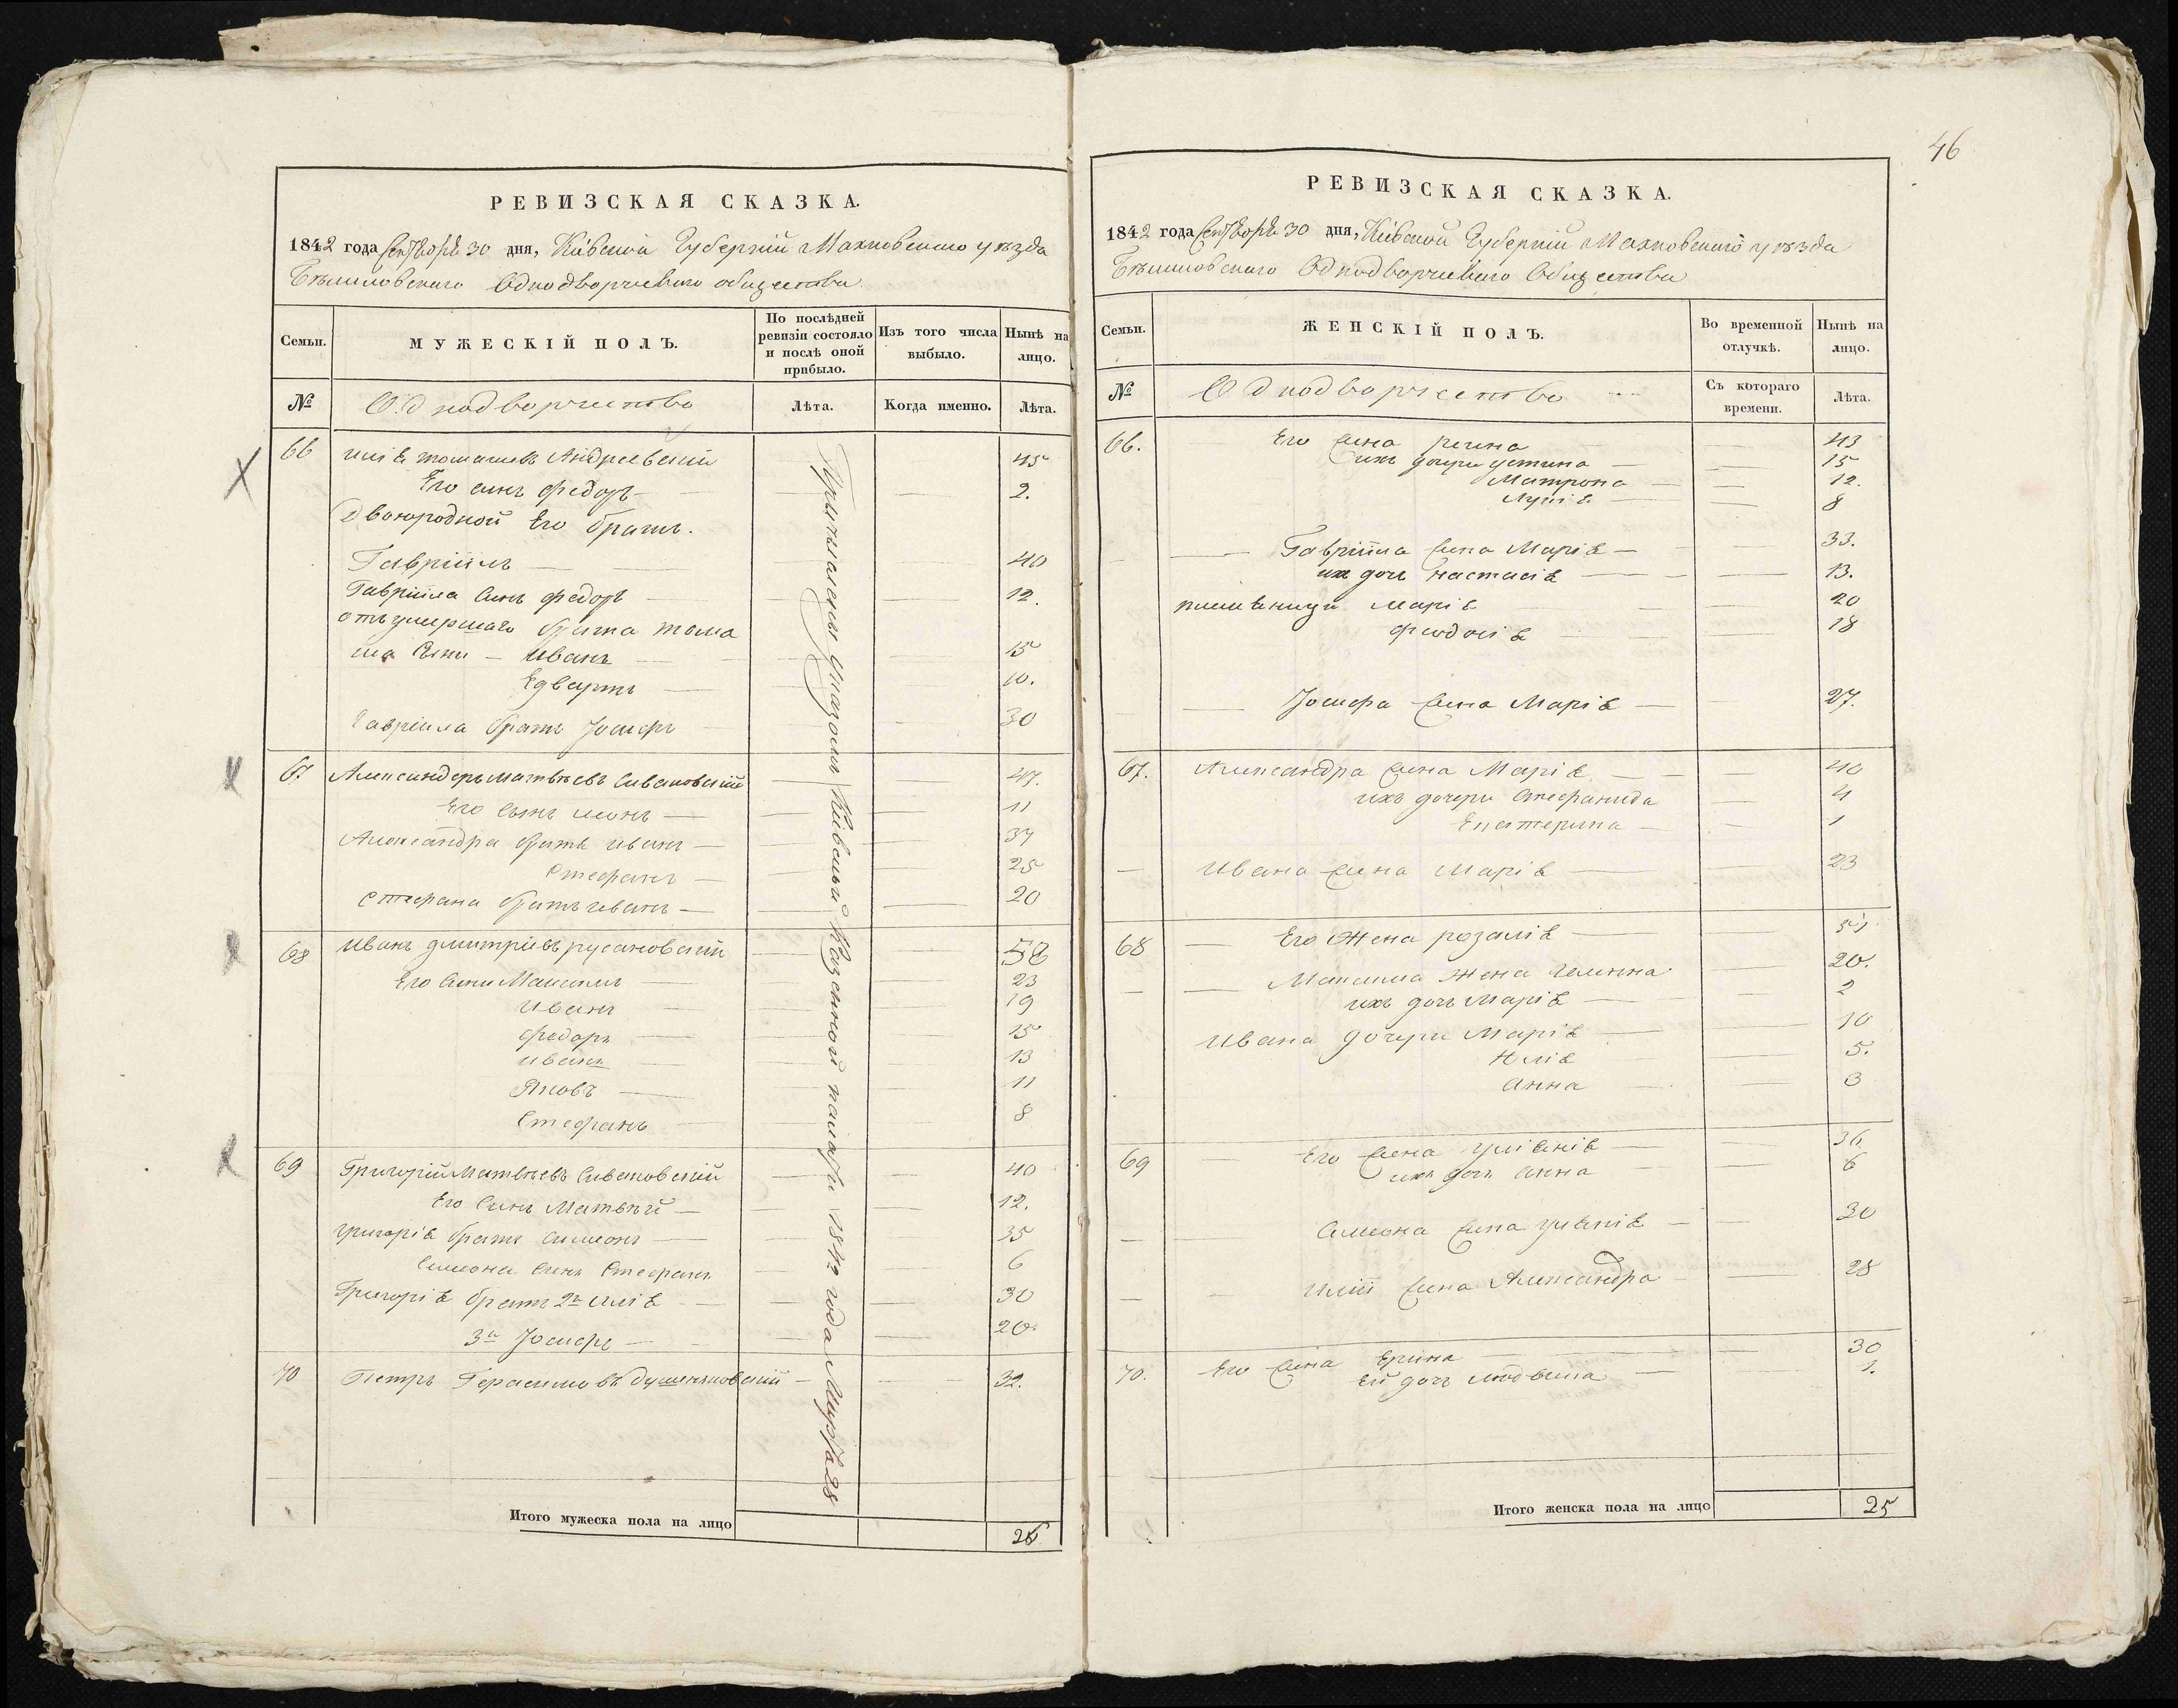 46
РЕВИЗСКАЯ СКАЗКА.
1842 года Сентября 30 дня, Кіевской Губерніи Махновского уѣзда
Бѣлиловского Однодворческого общества
Семьи.
МУЖЕСКІЙ ПОЛЪ.
По послѣдней ревизіи состояло и послѣ оной прибыло.
Изъ того числа выбыло.
Нынѣ на лицо.
№
Однодворчество
Лѣта.
Когда именно.
Лѣта.
Причислены Указомъ Кіевской Казенной палаты 1842 года Марта 28
66 Илія Томашевъ Андреевскій 45
Его синъ Федоръ 2.
Двоюродной Его братъ.
Гавріилъ 40
Гавріила Синъ Федоръ 12.
отъ умершаго брата Тома
ша Сини - Иванъ 15
Едвартъ 10.
Гавріила братъ Іосифъ 30
67 Александеръ Матвѣевъ Сивановскій 47.
Его Сынъ Леонъ 11
Александра братъ Иванъ 37
Стефанъ 25
Стефана братъ Иванъ 20
68 Иванъ Дмитріевъ Русановскій 58
Его Сини Максимъ 23
Иванъ 19
Федоръ 15
Иванъ 13
Яковъ 11
Стефанъ 8
69 Григорій Матвѣевъ Сивановскій 40
Его Синъ Матвѣй 12.
Григорія братъ Симеонъ 35
Симеона Синъ Стефанъ 6
Григорія братъ 2й Илія 30
3й Іосифъ 20.
70 Петръ Герасимовъ 32.
Итого мужеска пола на лицо 26
РЕВИЗСКАЯ СКАЗКА.
1842 года Сентября 30 дня, Кіевской Губерніи Махновского уѣзда
Бѣлиловского Однодворческого Общества
Семьи.
ЖЕНСКІЙ ПОЛЪ.
Во временной отлучкѣ.
Нынѣ на лицо.
№
Однодворчество
Съ котораго времени.
Лѣта.
66. Его жена Регина 43
ихъ дочери Устина 15
Матрона 12.
Луція 8
Гавріила жена Марія 33.
ихъ дочь Настасія 13.
племяници Марія 20
Феодосія 18
Іосифа жена Марія 27.
67. Александра жена Марія 40
ихъ дочери Стефанида 4
Екатерина 1
Ивана жена Марія 23
68 Его жена Розалія 51
Максима жена 20.
ихъ дочь Марія 2
Ивана дочери Марія 10
Юлія 5.
Анна 3
69 Его жена Уліанія 36
ихъ дочь Анна 6
Симеона жена Уліанія 30
Иліи жена Александра 28
70. Его жена Ерина 30
Ей дочь Людвика 1.
Итого женска пола на лицо 25